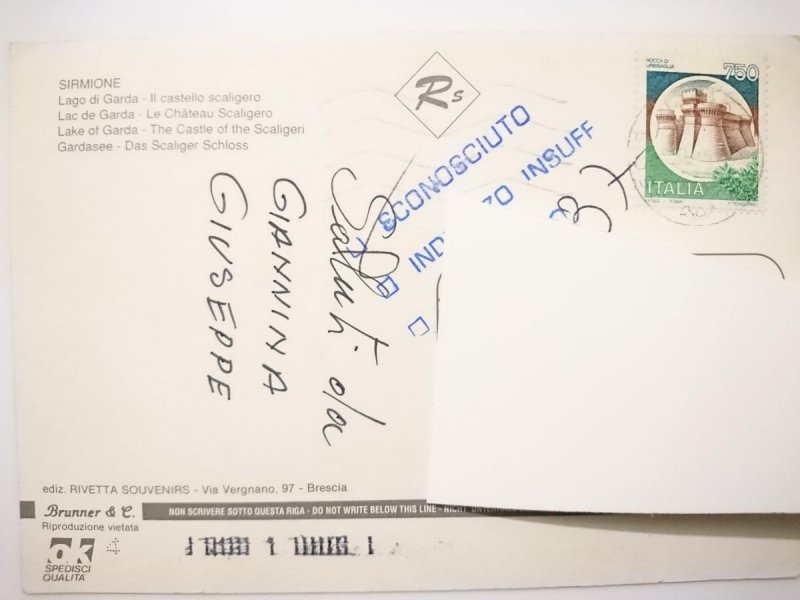 SIRMIONE
Lago di Garda - Il castello scaligero
Lac de Garda - Le Château Scaligero
Lake of Garda - The Castle of the Scaligeri
Gardasee - Das Scaliger Schloss
Rs
ROCCA DI
URBISAGLIA
750
ITALIA
SCONOSCIUTO
INSUFF
Saluti da
GIANNINA
GIUSEPPE
ediz. RIVETTA SOUVENIRS - Via Vergnano, 97 - Brescia
Brunner & C.
Riproduzione vietata
NON SCRIVERE SOTTO QUESTA RIGA - DO NOT WRITE BELOW THIS LINE - NICHT
ok
4
SPEDISCI
QUALITA'